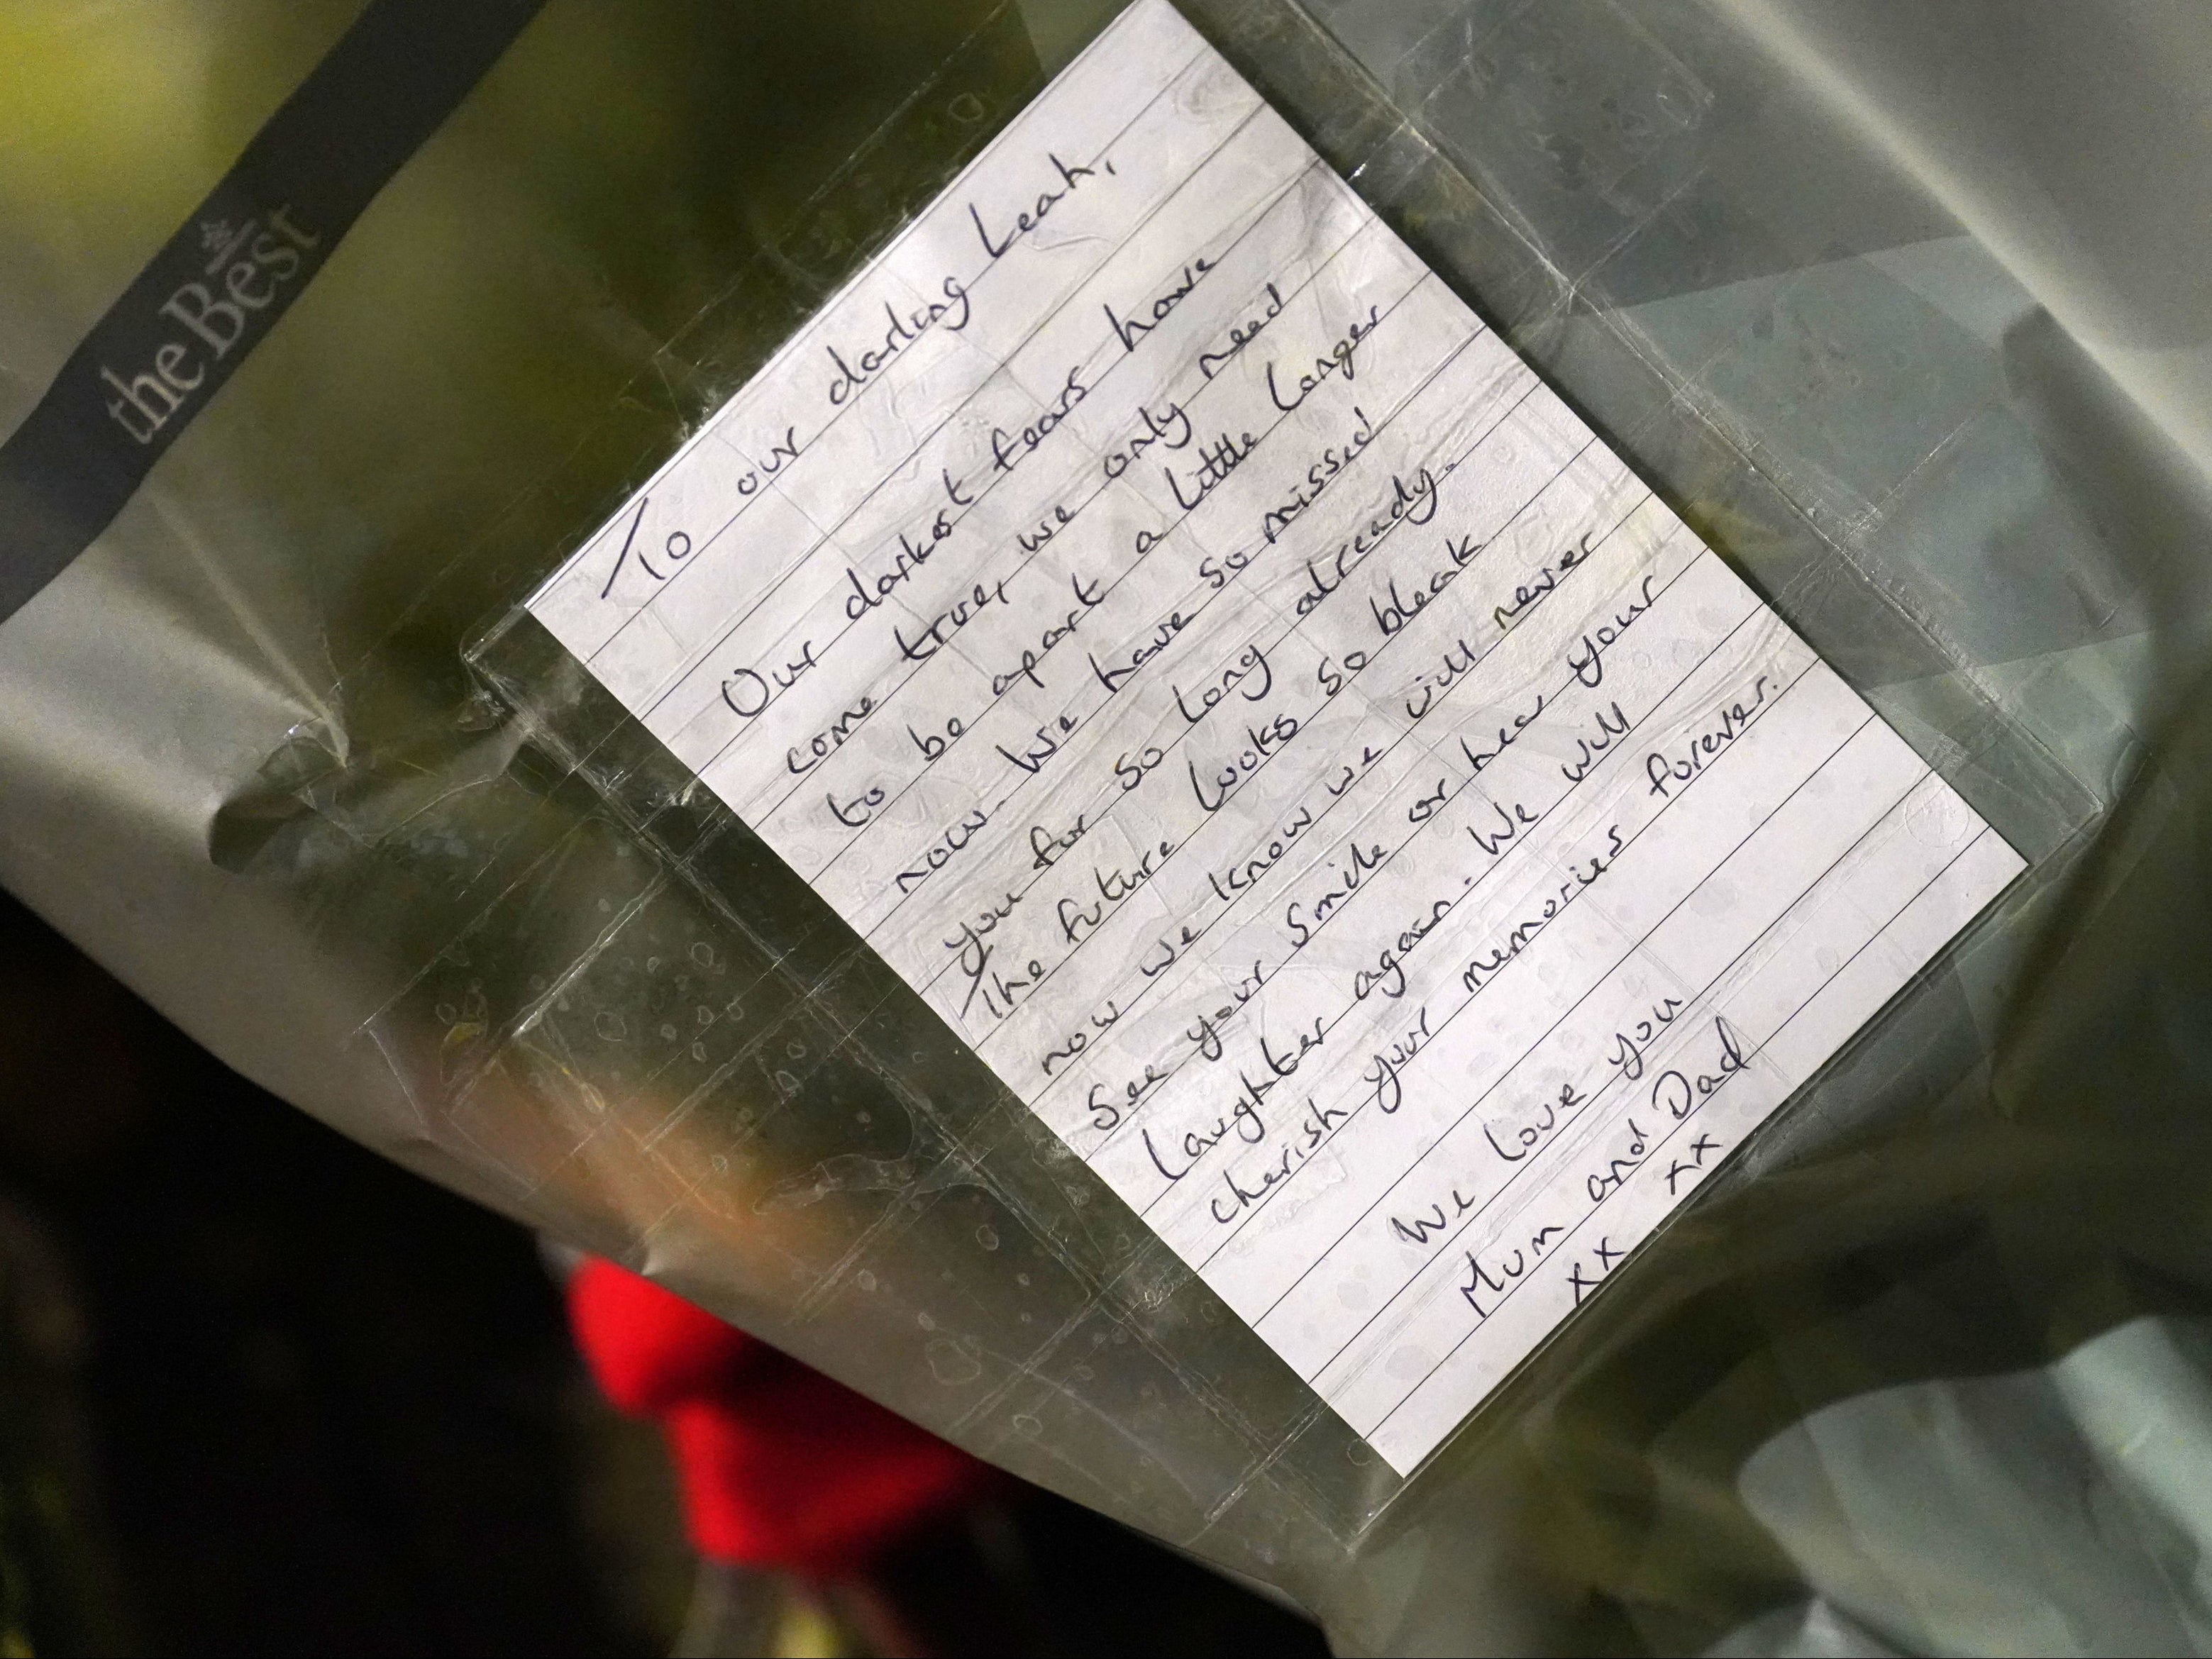 the Best
To our darling Leah,
Our darkest fears have
come true, we only need
to be apart a little longer
now. We have so missed
you for so long already.
The future looks so bleak
now we know we will never
see your smile or hear your
laughter again. We will
cherish your memories forever.
We love you
Mum and Dad
xx xx